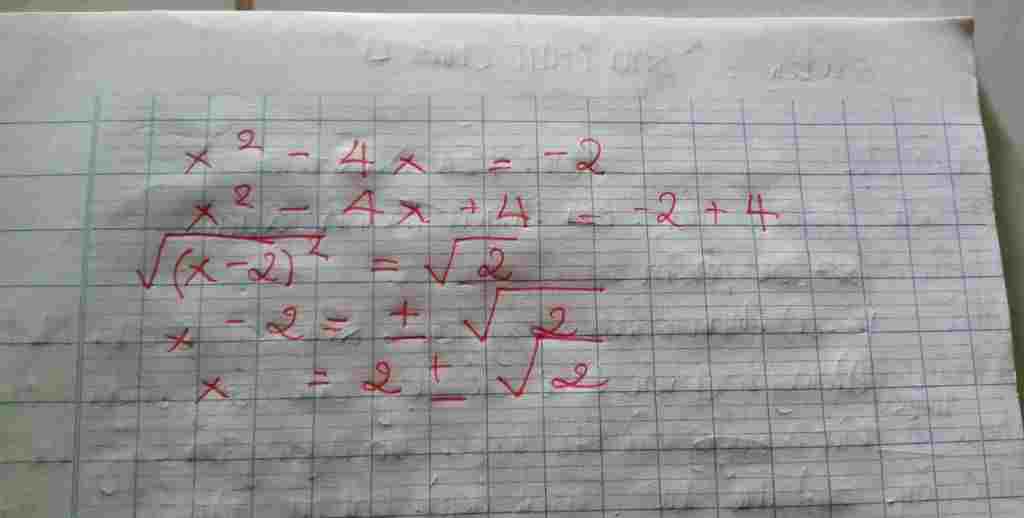 x² - 4x = -2
x² - 4x + 4 = -2 + 4
√(x-2)² = √2
x - 2 = ± √2
x = 2 ± √2